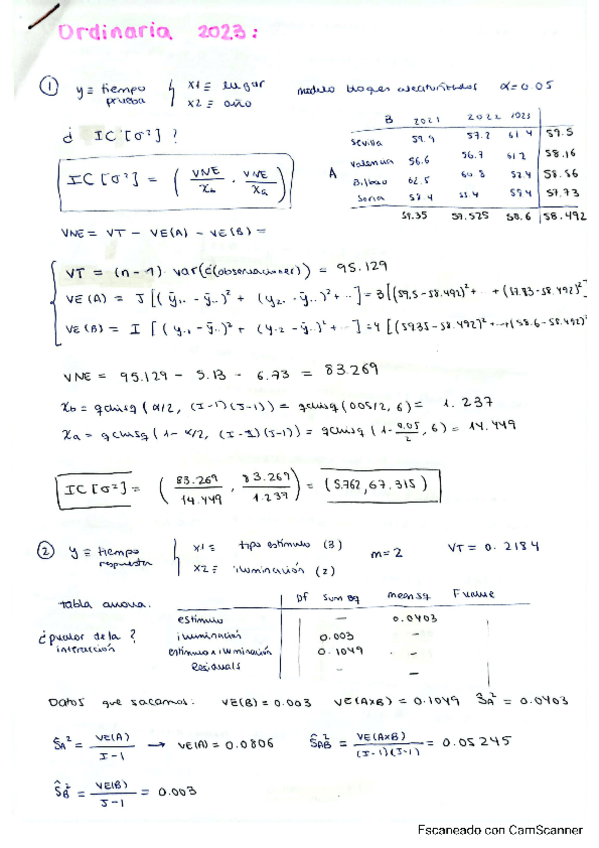 Ordinaria 2023:
① y ≡ tiempo prueba { x1 ≡ lugar x2 ≡ año modelo bloques aleatorizados α = 0.05
¿ IC [σ²] ?
B 2021 2022 2023
Sevilla 57.2 61.4 59.5
Valencia 56.6 56.7 61.2 58.16
A Bilbao 62.5 52.4 58.56
Soria 59.4 57.73
59.35 57.525 58.6 58.492
IC [σ²] = ( VNE/χb , VNE/χa )
VNE = VT - VE(A) - VE(B) =
VT = (n-1) · var(c(observaciones)) = 95.129
VE(A) = J [(ȳ1. - ȳ..)² + (y2. - ȳ..)² + ..] = 3 [(59,5 - 58.492)² + .. + (57.83 - 58.492)²]
VE(B) = I [(y.1 - ȳ..)² + (y.2 - ȳ..)² + ..] = 4 [(5935 - 58.492)² + ... + (58.6 - 58.492)²
VNE = 95.129 - 5.13 - 6.73 = 83.269
χb = qchisq (α/2, (I-1)(J-1)) = qchisq (005/2, 6) = 1.237
χa = qchisq (1-α/2, (I-1)(J-1)) = qchisq (1-0.05/2, 6) = 14.449
IC [σ²] = ( 83.269/14.449 , 83.269/1.237 ) = (5.762, 67.315)
② y ≡ tiempo respuesta { x1 ≡ tipo estímulo (3) x2 ≡ iluminación (2) m = 2 VT = 0.2184
tabla anova. Df sum sq mean sq F value
estímulo - 0.0403
¿pvalor de la interacción? iluminación 0.003 -
estímulo x iluminación 0.1049 -
Residuals - -
Datos que sacamos: VE(B) = 0.003 VE(AxB) = 0.1049 ŜA² = 0.0403
ŜA² = VE(A)/I-1 → VE(A) = 0.0806 ŜAB² = VE(AxB)/(I-1)(J-1) = 0.05245
ŜB² = VE(B)/J-1 = 0.003
Escaneado con CamScanner